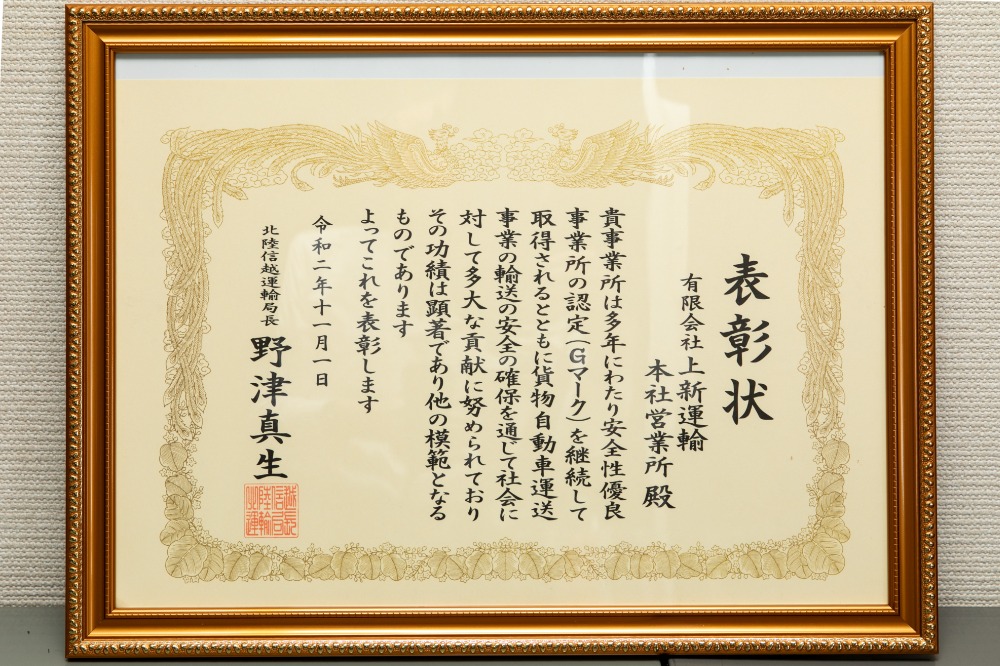 表彰状
有限会社上新運輸
本社営業所 殿
貴事業所は多年にわたり安全性優良
事業所の認定(Gマーク)を継続して
取得されるとともに貨物自動車運送
事業の輸送の安全の確保を通じて社会に
対して多大な貢献に努められており
その功績は顕著であり他の模範となる
ものであります
よってこれを表彰します
令和二年十一月一日
北陸信越運輸局長 野津真生